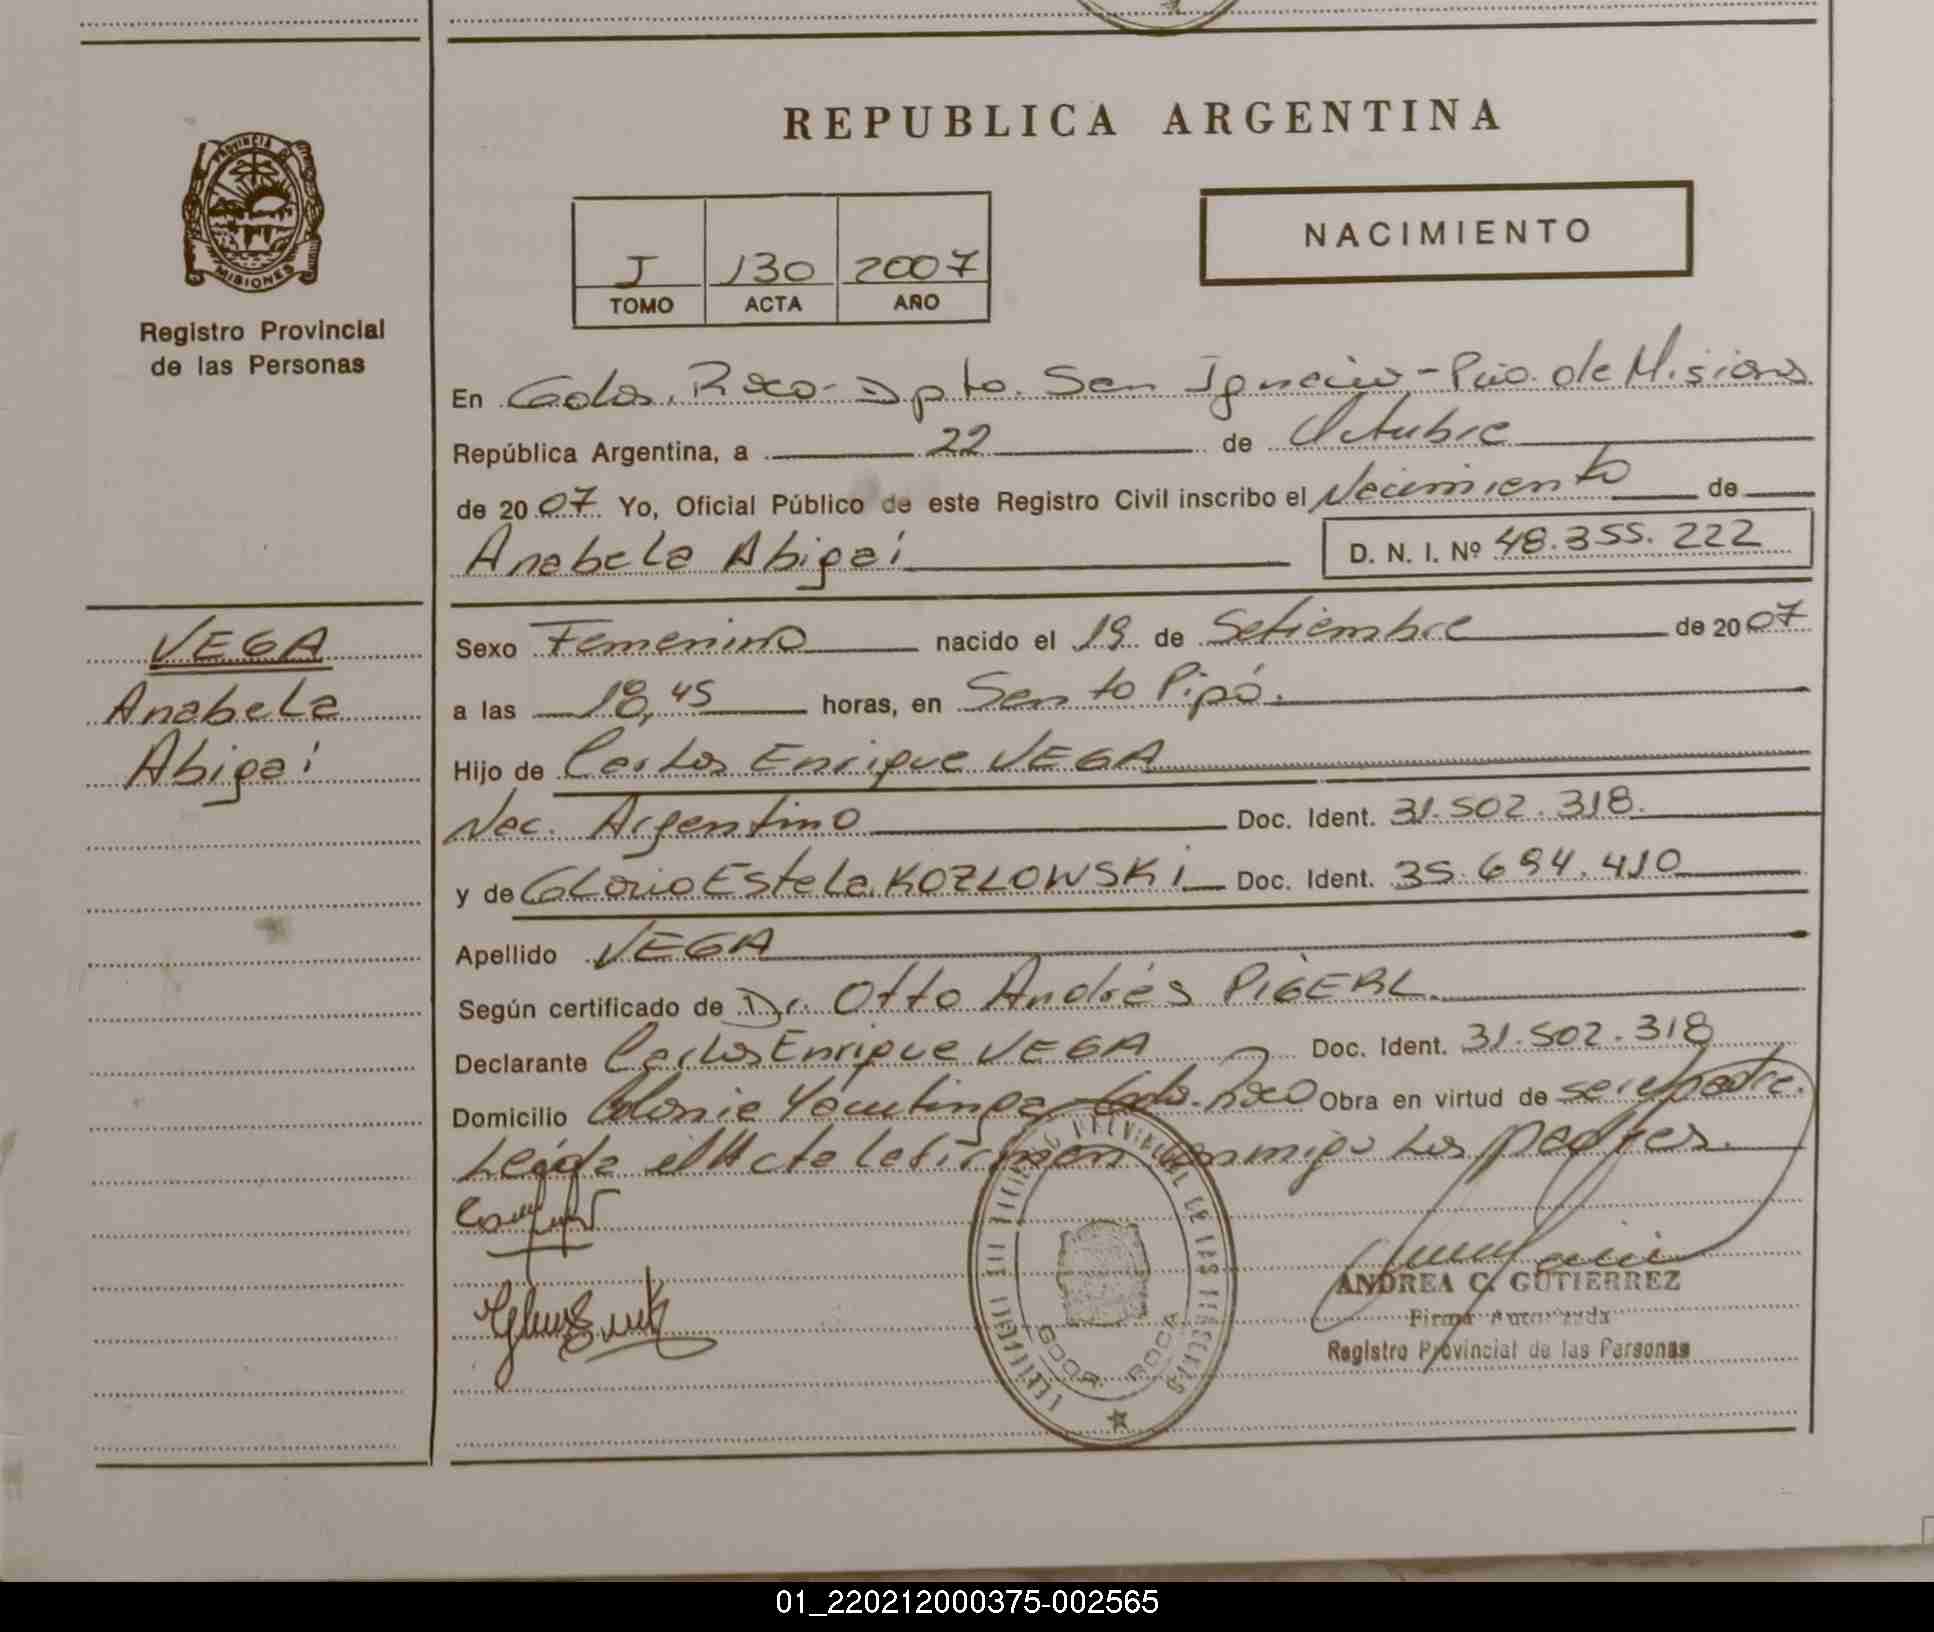 REPUBLICA ARGENTINA
PROVINCIA DE
MISIONES
Registro Provincial
de las Personas
NACIMIENTO
J 130 2007
TOMO ACTA AÑO
En Gdor. Roca - Dpto. San Ignacio - Pcia. de Misiones
República Argentina, a 22 de Octubre
de 2007 Yo, Oficial Público de este Registro Civil inscribo el Nacimiento de
Anabela Abigaí D. N. I. Nº 48.355.222
VEGA
Anabela
Abigaí
Sexo Femenino nacido el 19 de Setiembre de 2007
a las 18,45 horas, en Santo Pipó.
Hijo de Carlos Enrique VEGA
Nac. Argentino Doc. Ident. 31.502.318.
y de Gloria Estela KOZLOWSKi Doc. Ident. 35.694.410
Apellido VEGA
Según certificado de Dr. Otto Andrés
Declarante Carlos Enrique VEGA Doc. Ident. 31.502.318
Domicilio Colonia Yacutinga - Gdor. Roca Obra en virtud de ser el padre.
Leída el Acta la firman conmigo los padres.
GDOR. ROCA
ANDREA C. GUTIERREZ
Firma Autorizada
Registro Provincial de las Personas
01_220212000375-002565